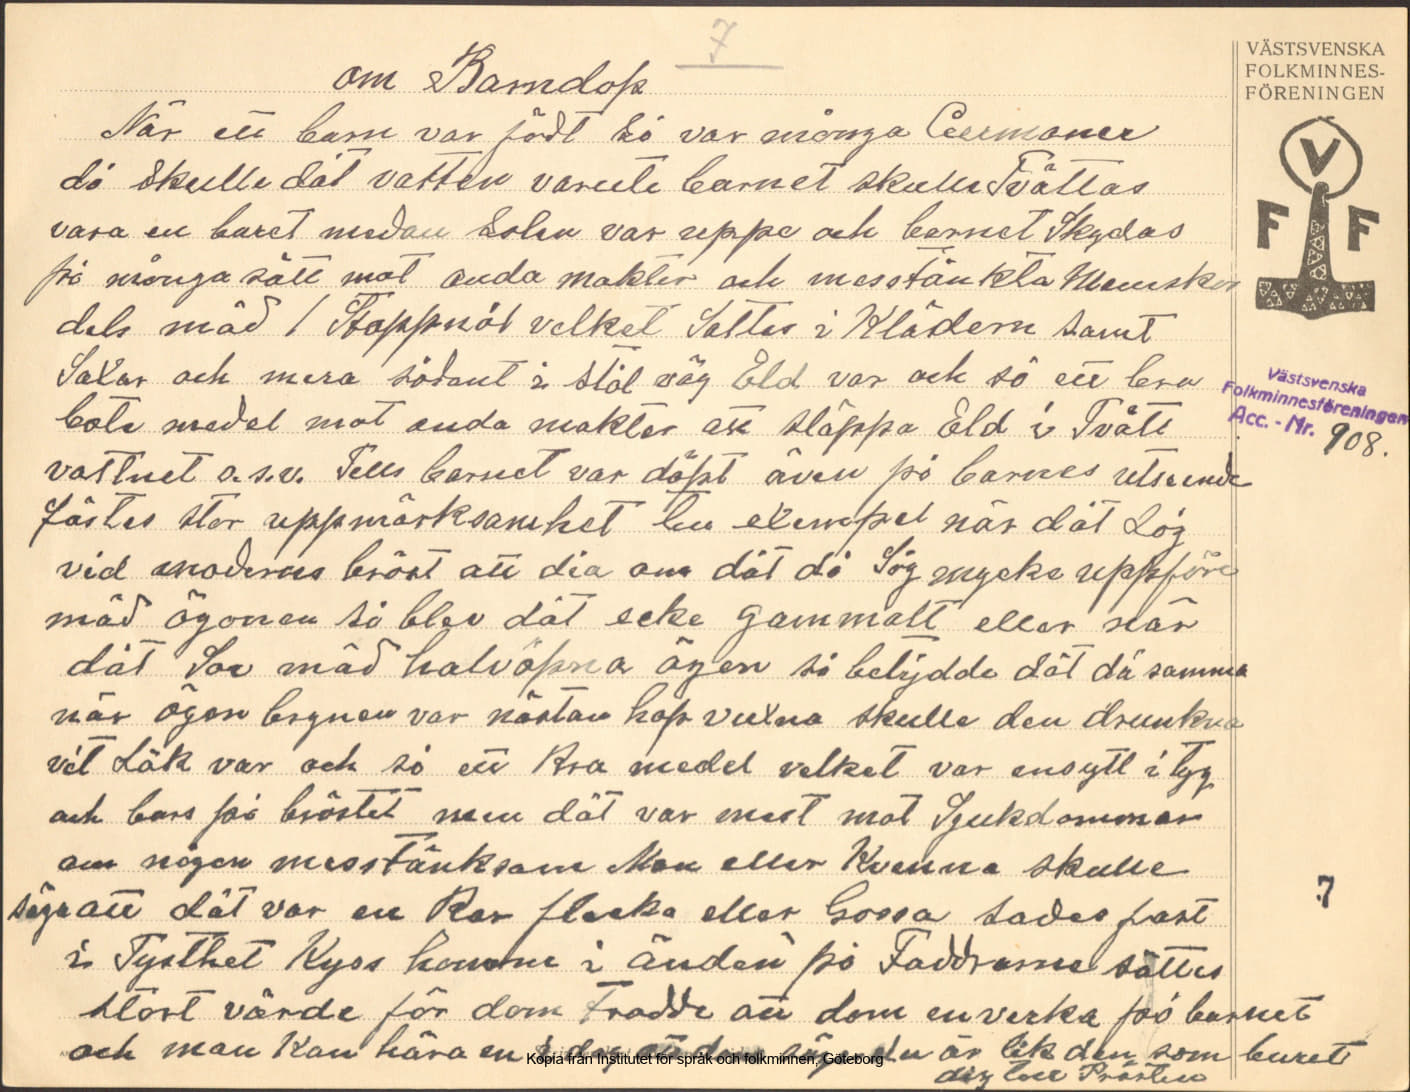 7
om Barndop
När ett barn var födt så var många Cermoner
då skulle dät vatten varuti barnet skulle Tvättas
vara en buret medan Solen var uppe och barnet Skydas
på många sätt mot onda makter och misstänkta Meniskor
dels mäd 1 Stoppnål vilket Sattes i Klädern samt
Saxar och mera sådant i Stål väg Eld var och så ett bra
bote medel mot onda makter att släppa Eld i Tvätt
vattnet o.s.v. Tills barnet var döpt även på barnes utseende
fästes stor uppmärksamhet till exempel när dät Låg
vid moderns bröst att dia om dät då Såg mycke uppföre
mäd ögonen så blev dät icke gammalt eller när
dät Sov mäd halvöpna ögen så betydde dät då samma
när ögon brynen var nästan hop vuxna skulle den drunkna
vit Lök var och så ett bra medel vilket var ensytt i tyg
och bars på bröstet men dät var mest mot Sjukdommar
om någon misstänksam Man eller Kvinna skulle
säga att dät var en Rar flecka eller Gossa sades fast
i Tysthet Kyss honom i änden på Faddrarne sattes
stort värde för dom trodde att dom enverka på barnet
och man Kan höra en i dag du är lik den som buret
dig till Prästen
VÄSTSVENSKA
FOLKMINNES-
FÖRENINGEN
V
F F
Västsvenska
Folkminnesföreningen
Acc. - Nr. 908.
7
Kopia från Institutet för språk och folkminnen, Göteborg